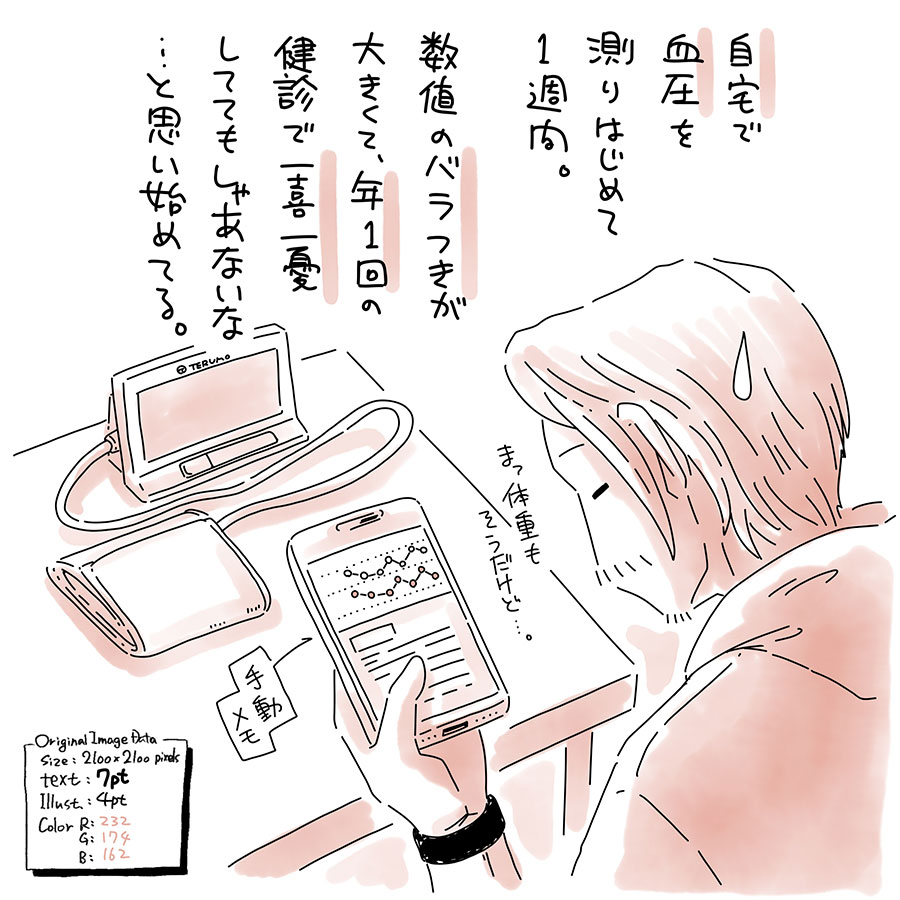 自宅で
血圧を
測りはじめて
1週間。
数値のバラつきが
大きくて、年1回の
健診で一喜一憂
しててもしゃあないな
…と思い始めてる。
TERUMO
まっ体重も
そうだけど…。
手動
メモ
Original Image Data
Size : 2100×2100 pixels
text : 7pt
Illust. : 4pt
Color R: 232
G: 174
B: 162